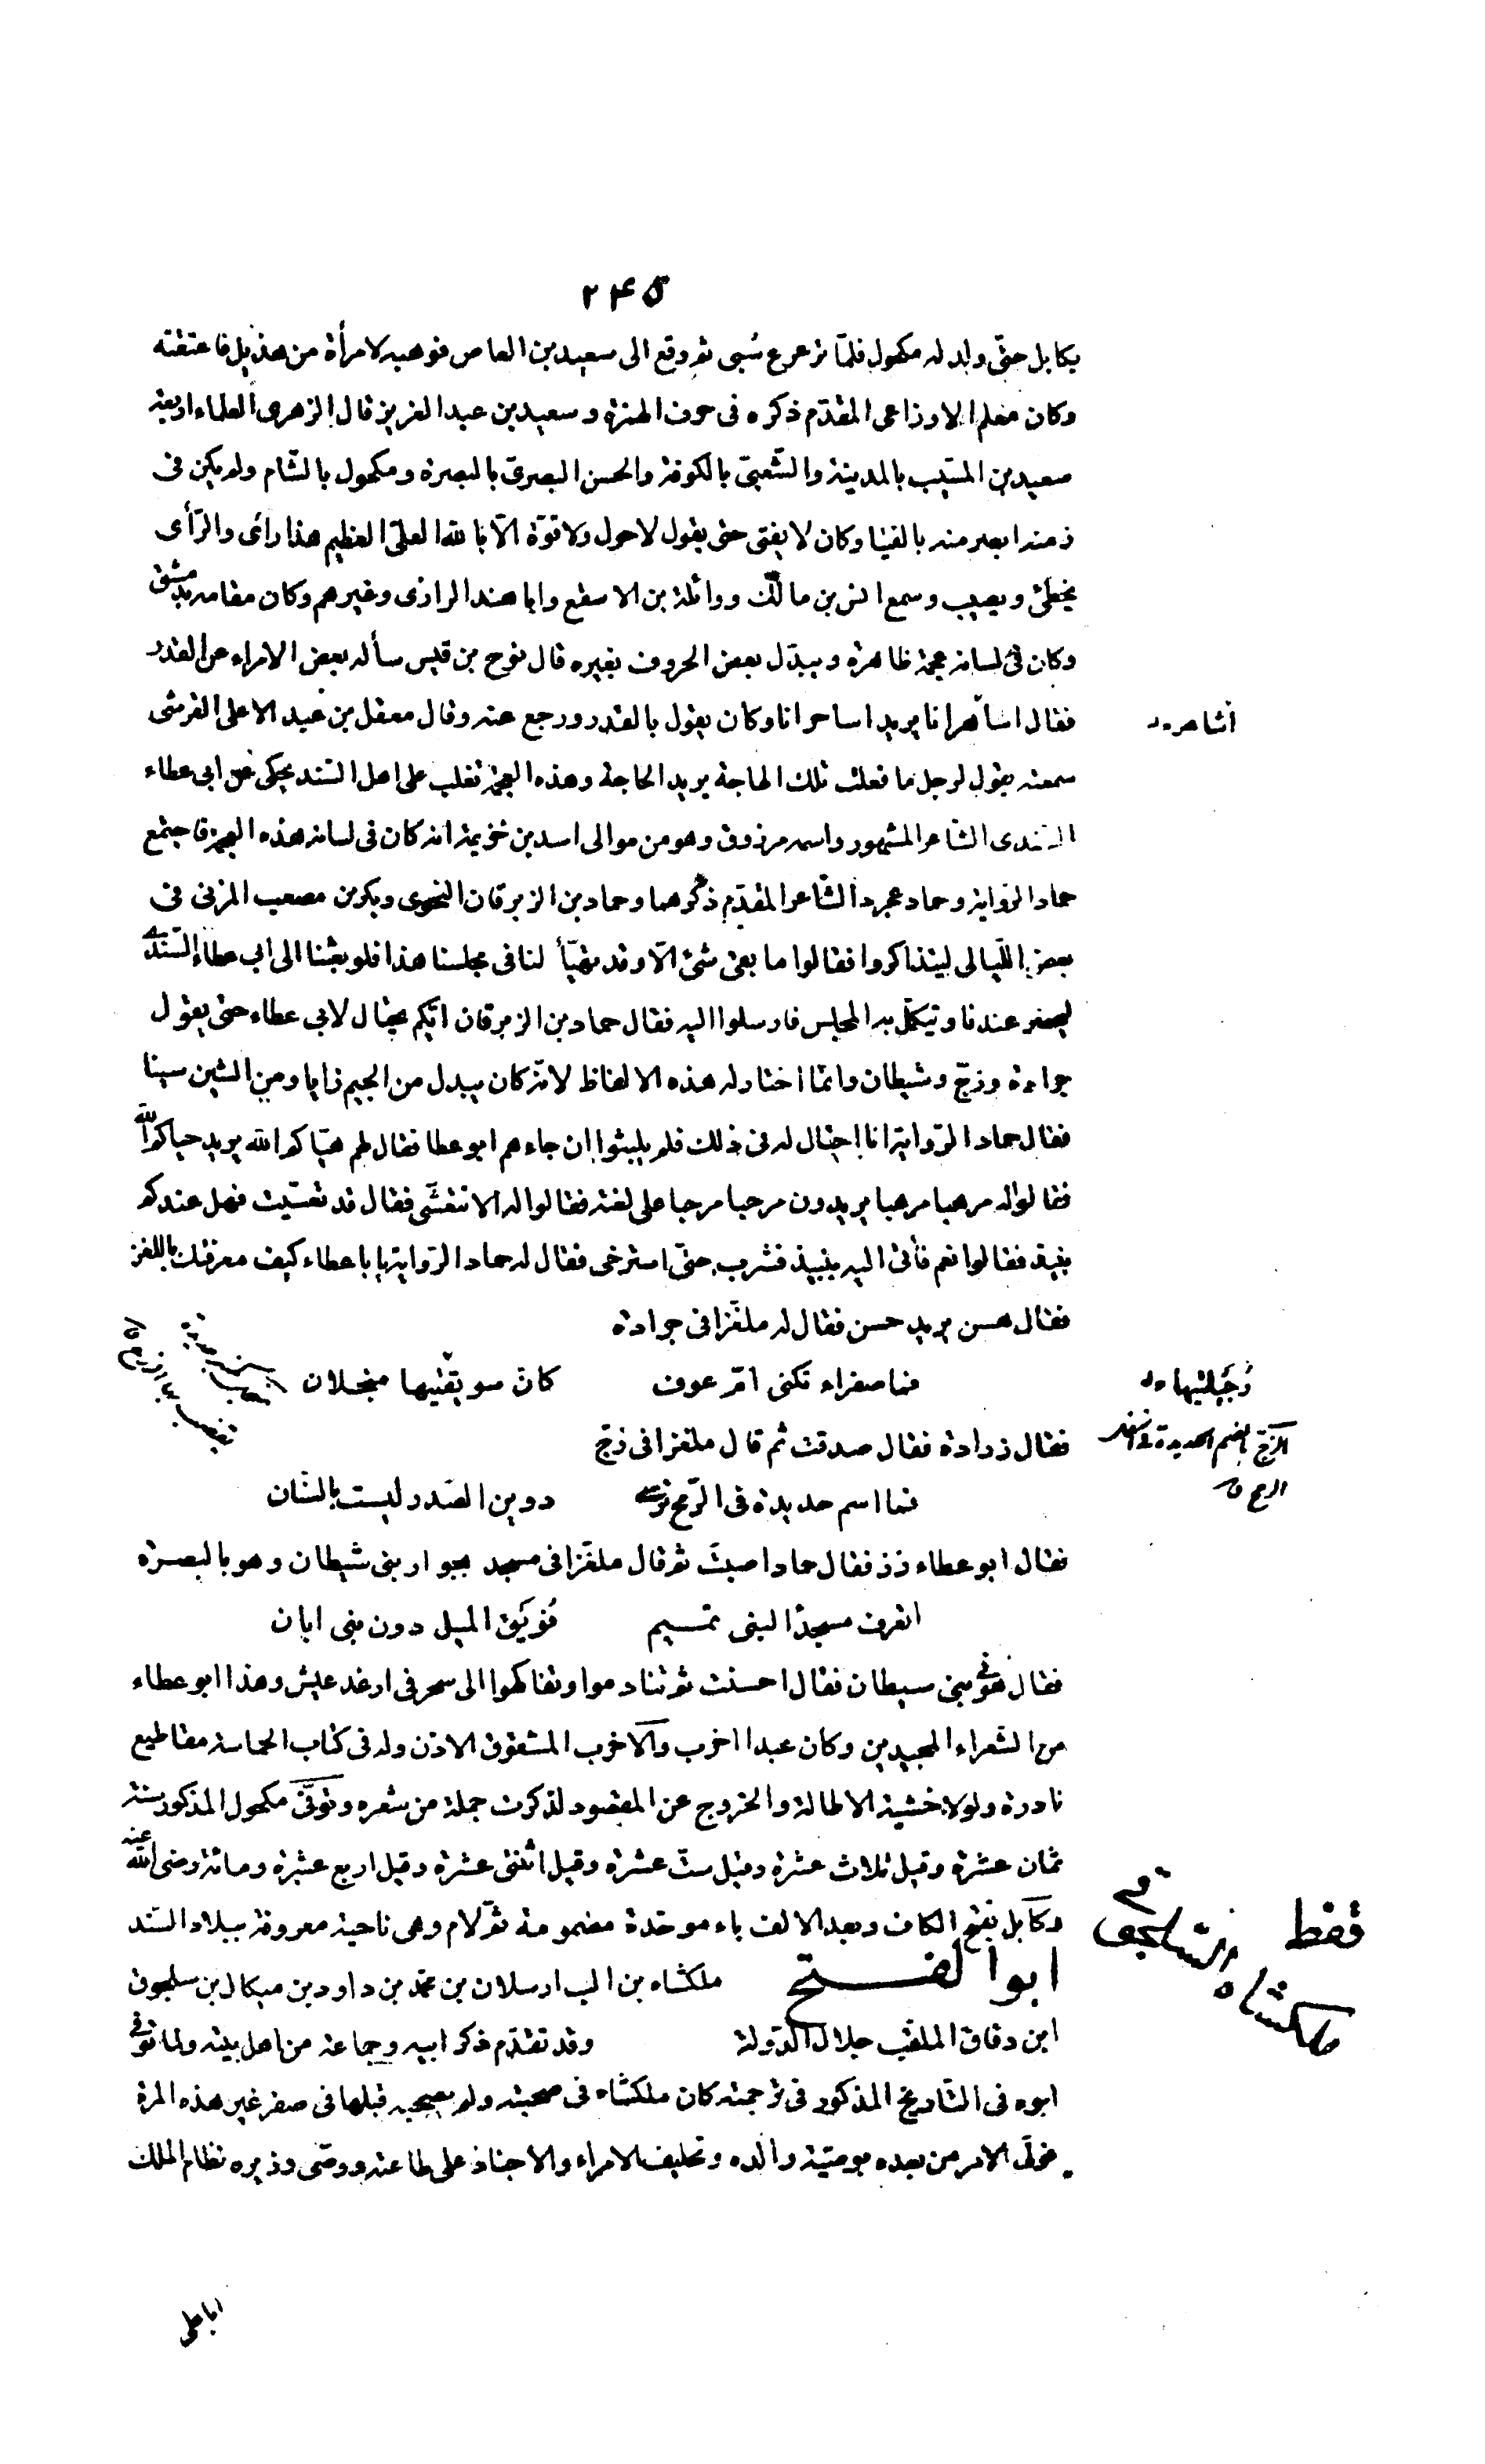 ٢٤٥
بكابل حتّى ولد له مكحول فلمّا ترعرع سُبى ثم وقع الى سعيد بن العاص فوهبه لامرأة من هذيل فاعتقته
وكان معلم الاوزاعى المقدّم ذكره فى حرف الهمزة وسعيد بن عبد العزيز قال الزهرى العلماء اربعة
سعيد بن المسيّب بالمدينة والشّعبىّ بالكوفة والحسن البصرىّ بالبصرة ومكحول بالشّام ولم يكن فى
زمنه ابصر منه بالفتيا وكان لا يفتى حتى يقول لا حول ولا قوّة الّا بالله العلىّ العظيم هذا رائى والرّأى
يخطئ ويصيب وسمع انس بن مالك وواثلة بن الاسقع وابا هند الرازى وغيرهم وكان مقامه بدمشق
وكان فى لسانه عجمة ظاهرة ويبدّل بعض الحروف بغيره قال نوح بن قيس سأله بعض الامراء عن القدر
فقال اساهر انا يريد اساحر انا وكان يقول بالقدر ورجع عنه وقال معقل بن عبد الاعلى القرشى
أشاهر
سمعته يقول لرجل ما فعلت تلك الهاجة يريد الحاجة وهذه العجمة تغلب على اهل السّند يحكى عن ابى عطاء
السندى الشّاعر المشهور واسمه مرزوق وهو من موالى اسد بن خزيمة انه كان فى لسانه هذه العجمة فاجتمع
حماد الرّواية وحماد عجرد الشّاعر المقدّم ذكرهما وحماد بن الزبرقان النحوى وبكر بن مصعب المزنى فى
بعض اللّيالى ليتذاكروا فقالوا ما بقى شئ الّا وقد تهيّأ لنا فى مجلسنا هذا فلو بعثنا الى ابى عطاء السّندى
ليحضر عندنا ويتكمّل به المجلس فارسلوا اليه فقال حماد بن الزبرقان ايّكم يحتال لابى عطاء حتى يقول
جرادة وزجّ وشيطان وانّما اختار له هذه الالفاظ لانّه كان يبدل من الجيم زايا ومن الشين سينا
فقال حماد الرّواية انا احتال له فى ذلك فلم يلبثوا ان جاءهم ابو عطا فقال لهم هيّاكم الله يريد حياكم الله
فقالوا له مرهبا مرهبا يريدون مرحبا مرحبا على لغته فقالوا له الا تتعشّى فقال قد تعسّيت فهل عندكم
نبيذ فقالوا نعم فأتى اليه بنبيذ فشرب حتّى استرخى فقال له حماد الرّواية يا ابا عطاء كيف معرفتك باللغز
فقال هسن يريد حسن فقال له ملغّزا فى جرادة
فما صفراء تكنى امّ عوف كان سويقتيها منجلان
رُجَيلتيها
فقال زرادة فقال صدقت ثم قال ملغزا فى زجّ
الزجّ بالضم الحديدة فى اسفل
الرمح
فما اسم حديدة فى الرّمح ترسى دوين الصّدر ليست بالسّنان
فقال ابو عطاء زز فقال حماد اصبتَ ثم قال ملغّزا فى مسجد بجوار بنى شيطان وهو بالبصرة
اتعرف مسجدًا لبنى تميم فُوَيق الميل دون بنى ابان
فقال هو فى بنى سيطان فقال احسنت ثم تنادموا وتفاكهوا الى سحر فى ارغد عيش وهذا ابو عطاء
من الشّعراء المجيدين وكان عبدا اخرب والاخرب المشقوق الاذن وله فى كتاب الحماسة مقاطيع
نادرة ولولا خشية الاطالة والخروج عن المقصود لذكرت جملة من شعره وتوفّى مكحول المذكور سنة
ثمان عشرة وقيل ثلاث عشرة وقيل ستّ عشرة وقيل اثنتى عشرة وقيل اربع عشرة ومائة رضى الله عنه
وكابل بفتح الكاف وبعد الالف باء موحّدة مضمومة ثمّ لام وهى ناحية معروفة ببلاد السّند
ابو الفتح ملكشاه بن الب ارسلان بن محمّد بن داود بن ميكال بن سلجوق
قفط
ملكشاه السّلجوقى
ابن دقاق الملقّب جلال الدّولة وقد تقدّم ذكر ابيه وجماعة من اهل بيته ولما توفى
ابوه فى التّاريخ المذكور فى ترجمته كان ملكشاه فى صحبته ولم يصحبه قبلها فى سفر غير هذه المرة
فولّى الامر من بعده بوصيّة والده وتحليف الامراء والاجناد على طاعته ووصّى وزيره نظام الملك
اباعلى